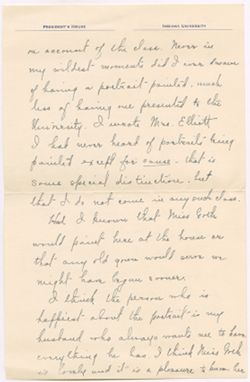 PRESIDENT'S HOUSE INDIANA UNIVERSITY
on account of the class. Never in
my wildest moments did I ever dream
of having a portrait painted - much
less of having one presented to the
University. I wrote Mrs. Elliott
I had never heard of portraits being
painted except for cause - that is
some special distinction - but
that I do not come in any such class.
Had I known that Miss
would paint here at the house or
that any old gown would serve we
might have begun sooner.
I think the person who is
happiest about the portrait is my
husband who always wants me to have
everything he has. I think Miss
is lovely and it is a pleasure to have her